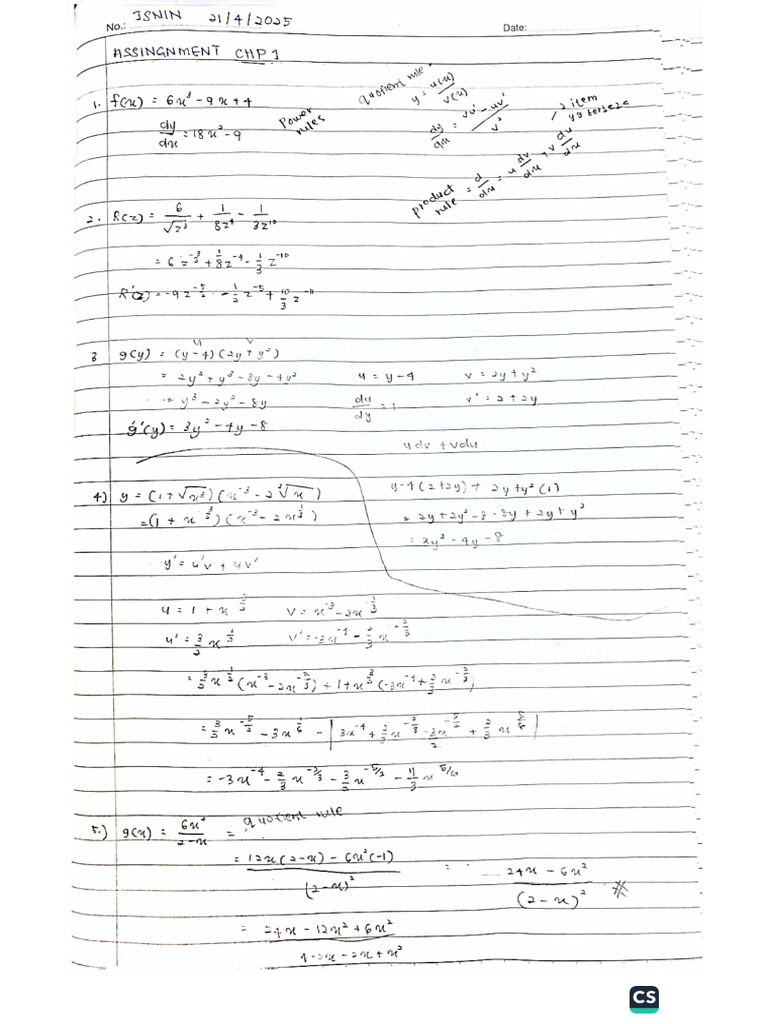 No.: ISNIN 21/4/2025 Date:
ASSINGNMENT CHP 1
1. f(x) = 6x³ - 9x + 4
dy/dx = 18x² - 9
Power rules
quotient rule
y = u(x)/v(x)
dy/dx = vu' - uv'/v²
product rule = d/dx = u dv/dx + v du/dx
2 item
2. R(z) = 6/√z³ + 1/8z⁴ - 1/3z¹⁰
= 6z^-3/2 + 1/8 z^-4 - 1/3 z^-10
R'(z) = -9z^-5/2 - 1/2 z^-5 + 10/3 z^-11
u v
3 g(y) = (y-4)(2y+y²)
= 2y² + y³ - 8y - 4y²
= y³ - 2y² - 8y
g'(y) = 3y² - 4y - 8
u = y-4 v = 2y+y²
du/dy = 1 v' = 2+2y
udv + vdu
y-4(2+2y) + 2y+y²(1)
= 2y+2y²-8-8y+2y+y²
= 3y²-4y-8
4) y = (1+√x³)(x^-3 - 2 ³√x)
= (1 + x^3/2)(x^-3 - 2x^1/3)
y' = u'v + uv'
u = 1 + x^3/2 v = x^-3 - 2x^1/3
u' = 3/2 x^1/2 v' = -3x^-4 - 2/3 x^-2/3
= 3/2 x^1/2 (x^-3 - 2x^-2/3) + 1+x^3/2 (-3x^-4 + 2/3 x^-2/3)
= -3x^-4 - 2/3 x^-2/3 - 3/2 x^-5/2 - 11/3 x^5/6
5.) g(x) = 6x²/2-x = quotient rule
= 12x(2-x) - 6x²(-1)/(2-x)² = 24x - 6x²/(2-x)² #
= 24x - 12x² + 6x²/4-2x-2x+x²
CS